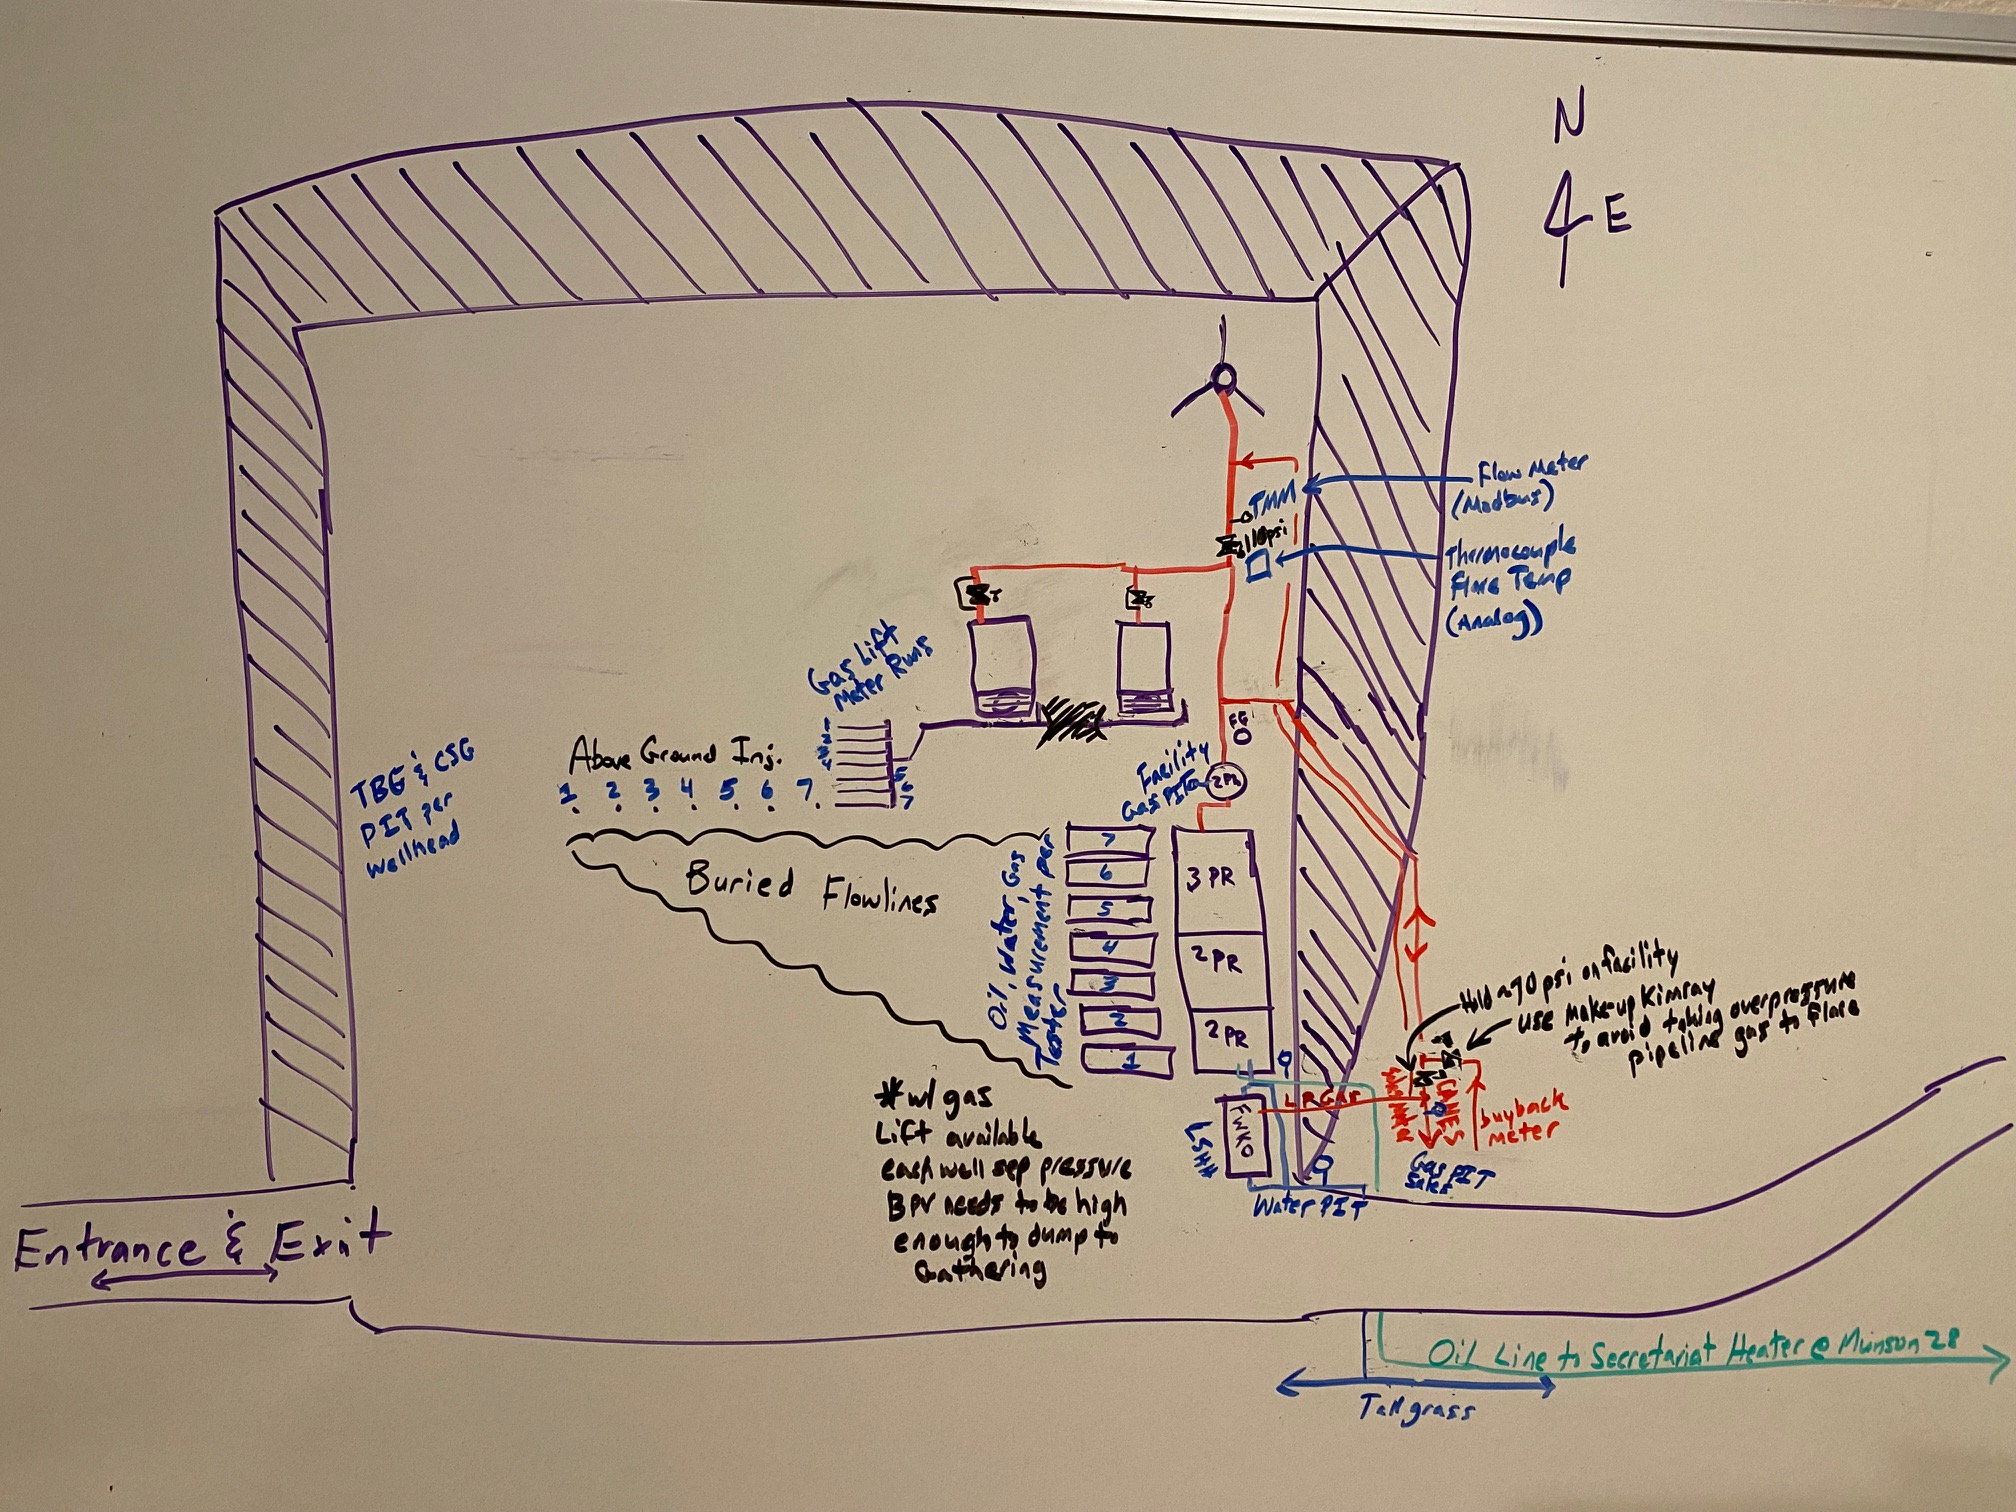 N
E
Flow Meter
(Modbus)
TMM
110psi
Thermocouple
Flare Temp
(Analog)
Gas Lift
Meter Runs
1
2
3
4
5
6
7
FG
Above Ground Inj.
1 2 3 4 5 6 7
TBG & CSG
PIT per
wellhead
Facility
Gas PIT
2Ph
Buried Flowlines
Oil, Water, Gas
Measurement per
Tester
7
6
5
4
3
2
1
3 PR
2 PR
2 PR
Hold ~70 psi on facility
use Make-up Kimray
to avoid taking overpressure
pipeline gas to flare
LP GAS
buyback
meter
FWKO
LSHH
Gas PIT
Sales
Water PIT
* w/ gas
Lift available
each well sep pressure
BPV needs to be high
enough to dump to
Gathering
Entrance & Exit
Oil Line to Secretariat Heater @ Munson 28
Tallgrass